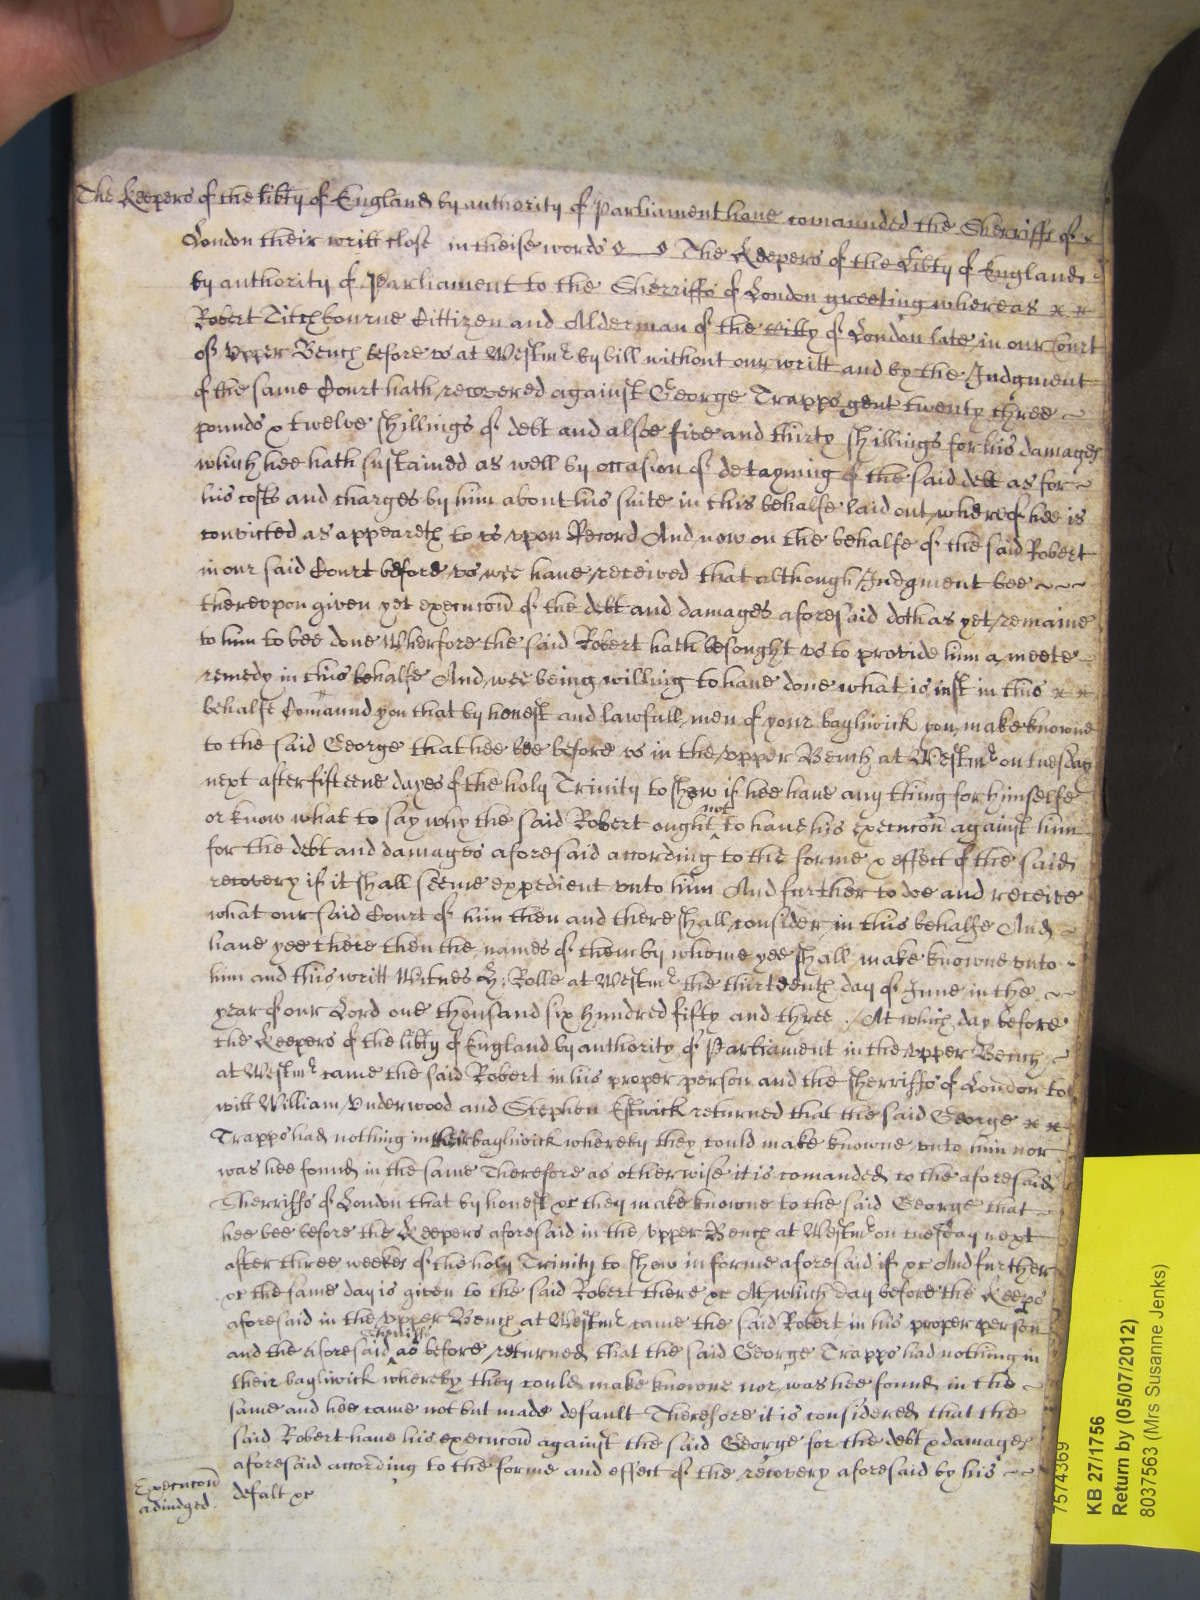 The Keepers of the libty of England by authority of Parliament have comaunded the Sherriffs of
London their writt close in theise words The Keepers of the Libty of England
by authority of Parliament to the Sherriffs of London greeting whereas
Robert Titchbourne Cittizen and Alderman of the Citty of London late in our Court
of Upper Bench before us at Westmr by bill without our writt and by the Judgment
of the same Court hath recovered against George Trapps gent twenty three
pounds & twelve shillings of debt and alsoe five and thirty shillings for his damages
which hee hath sustained as well by occasion of detayning of the said debt as for
his costs and charges by him about his suite in this behalfe laid out whereof hee is
convicted as appeareth to us upon Record And now on the behalfe of the said Robert
in our said Court before us wee have received that although Judgment bee
thereupon given yet execucon of the debt and damages aforesaid doth as yet remaine
to him to bee done Wherfore the said Robert hath besought us to provide him a meete
remedy in this behalfe And wee being willing to have done what is iust in this
behalfe Comaund you that by honest and lawfull men of your bayliwick you make knowne
to the said George that hee bee before us in the upper Bench at Westmr on tuesday
next after fifteene dayes of the holy Trinity to shew if hee have any thing for himselfe
or know what to say why the said Robert ought not to have his execucon against him
for the debt and damages aforesaid according to the forme & effect of the said
recovery if it shall seeme expedient unto him And further to doe and receive
what our said Court of him then and there shall consider in this behalfe And
have yee there then the names of them by whome yee shall make knowne unto
him and this writt Witnes H: Rolle at Westmr the thirteenth day of June in the
year of our Lord one thousand six hundred fifty and three ./ At which day before
the Keepers of the libty of England by authority of Parliament in the upper Bench
at Westmr came the said Robert in his proper person and the sherriffs of London to
witt William Underwood and Stephen Estwick returned that the said George
Trapps had nothing in their bayliwick whereby they could make knowne unto him nor
was hee found in the same Therefore as otherwise it is comanded to the aforesaid
Sherriffs of London that by honest &c they make knowne to the said George that
hee bee before the Keepers aforesaid in the upper Bench at Westmr on tuesday next
after three weekes of the holy Trinity to shew in forme aforesaid if &c And further
&c the same day is given to the said Robert there &c At which day before the Keeps
aforesaid in the upper Bench at Westmr came the said Robert in his proper person
and the aforesaid Sherriffs as before returned that the said George Trapps had nothing in
their bayliwick whereby they could make knowne nor was hee found in the
same and hee came not but made default Therefore it is considered that the
said Robert have his execucon against the said George for the debt & damages
aforesaid according to the forme and effect of the recovery aforesaid by his
defalt &c
Execucon
adiudged.
7574369
KB 27/1756
Return by (05/07/2012)
8037563 (Mrs Susanne Jenks)